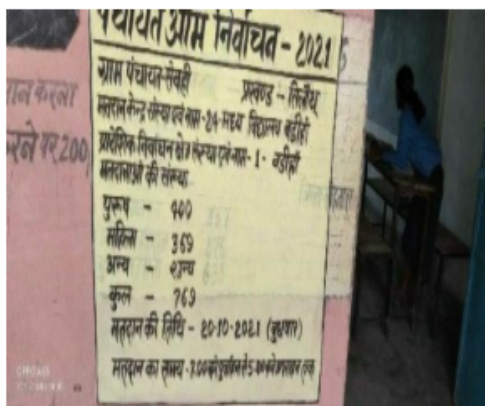 पंचायत आम निर्वाचन - 2021
ग्राम पंचायत-सेवही प्रखण्ड - तिलौथू
मतदान केन्द्र संख्या एवं नाम - 24 - मध्य विद्यालय बडीहाँ
प्रादेशिक निर्वाचन क्षेत्र संख्या एवं नाम - 1 - बडीहाँ
मतदाताओं की संख्या
पुरुष - 400
महिला - 369
अन्य - शून्य
कुल - 769
मतदान की तिथि - 20-10-2021 (बुधवार)
मतदान का समय - 7.00 बजे पूर्वाहन से 5.00 बजे अपराहन तक
करना
रने पर 200